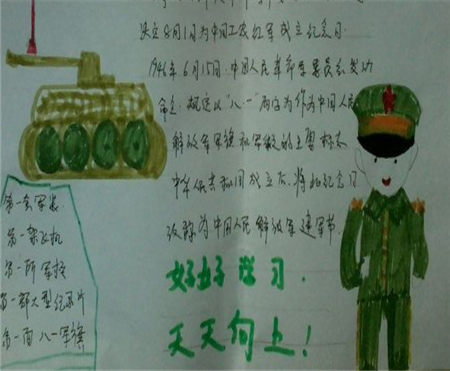 决定8月1日为中国工农红军成立纪念日.
1946年6月15日,中国人民革命军事委员会发布
命令,规定以"八一"两字为作为中国人民
解放军军旗和军徽的主要标志
中华人民共和国成立后,将此纪念日
改称为中国人民解放军建军节.
第一套军装
第一架飞机
第一所军校
第一部大型纪录片
第一面八一军旗
好好学习.
天天向上!